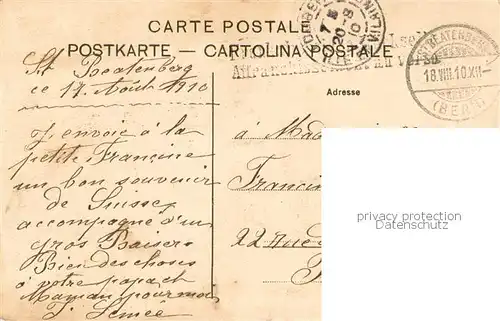 CARTE POSTALE
POSTKARTE — CARTOLINA POSTALE
Affranchissement au verso
ST BEATENBERG
18.VIII.10.XII–
(BERN)
Adresse
St Beatenberg
ce 17 Août 1910
J'envoie à la
petite Francine
un bon souvenir
de Suisse,
accompagné d'un
gros Baiser.
Bien des choses
à votre papa et
Maman pour moi
à Mad
Francin
22 Rue
privacy protection
Datenschutz